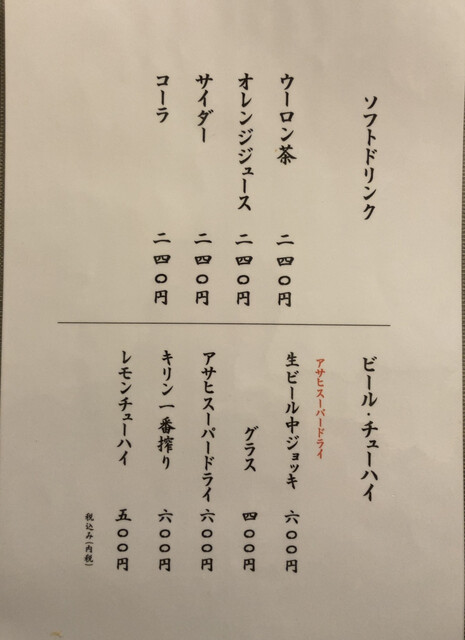 ソフトドリンク
ウーロン茶 二四〇円
オレンジジュース 二四〇円
サイダー 二四〇円
コーラ 二四〇円
ビール・チューハイ
アサヒスーパードライ
生ビール中ジョッキ 六〇〇円
グラス 四〇〇円
アサヒスーパードライ 六〇〇円
キリン一番搾り 六〇〇円
レモンチューハイ 五〇〇円
税込み（内税）